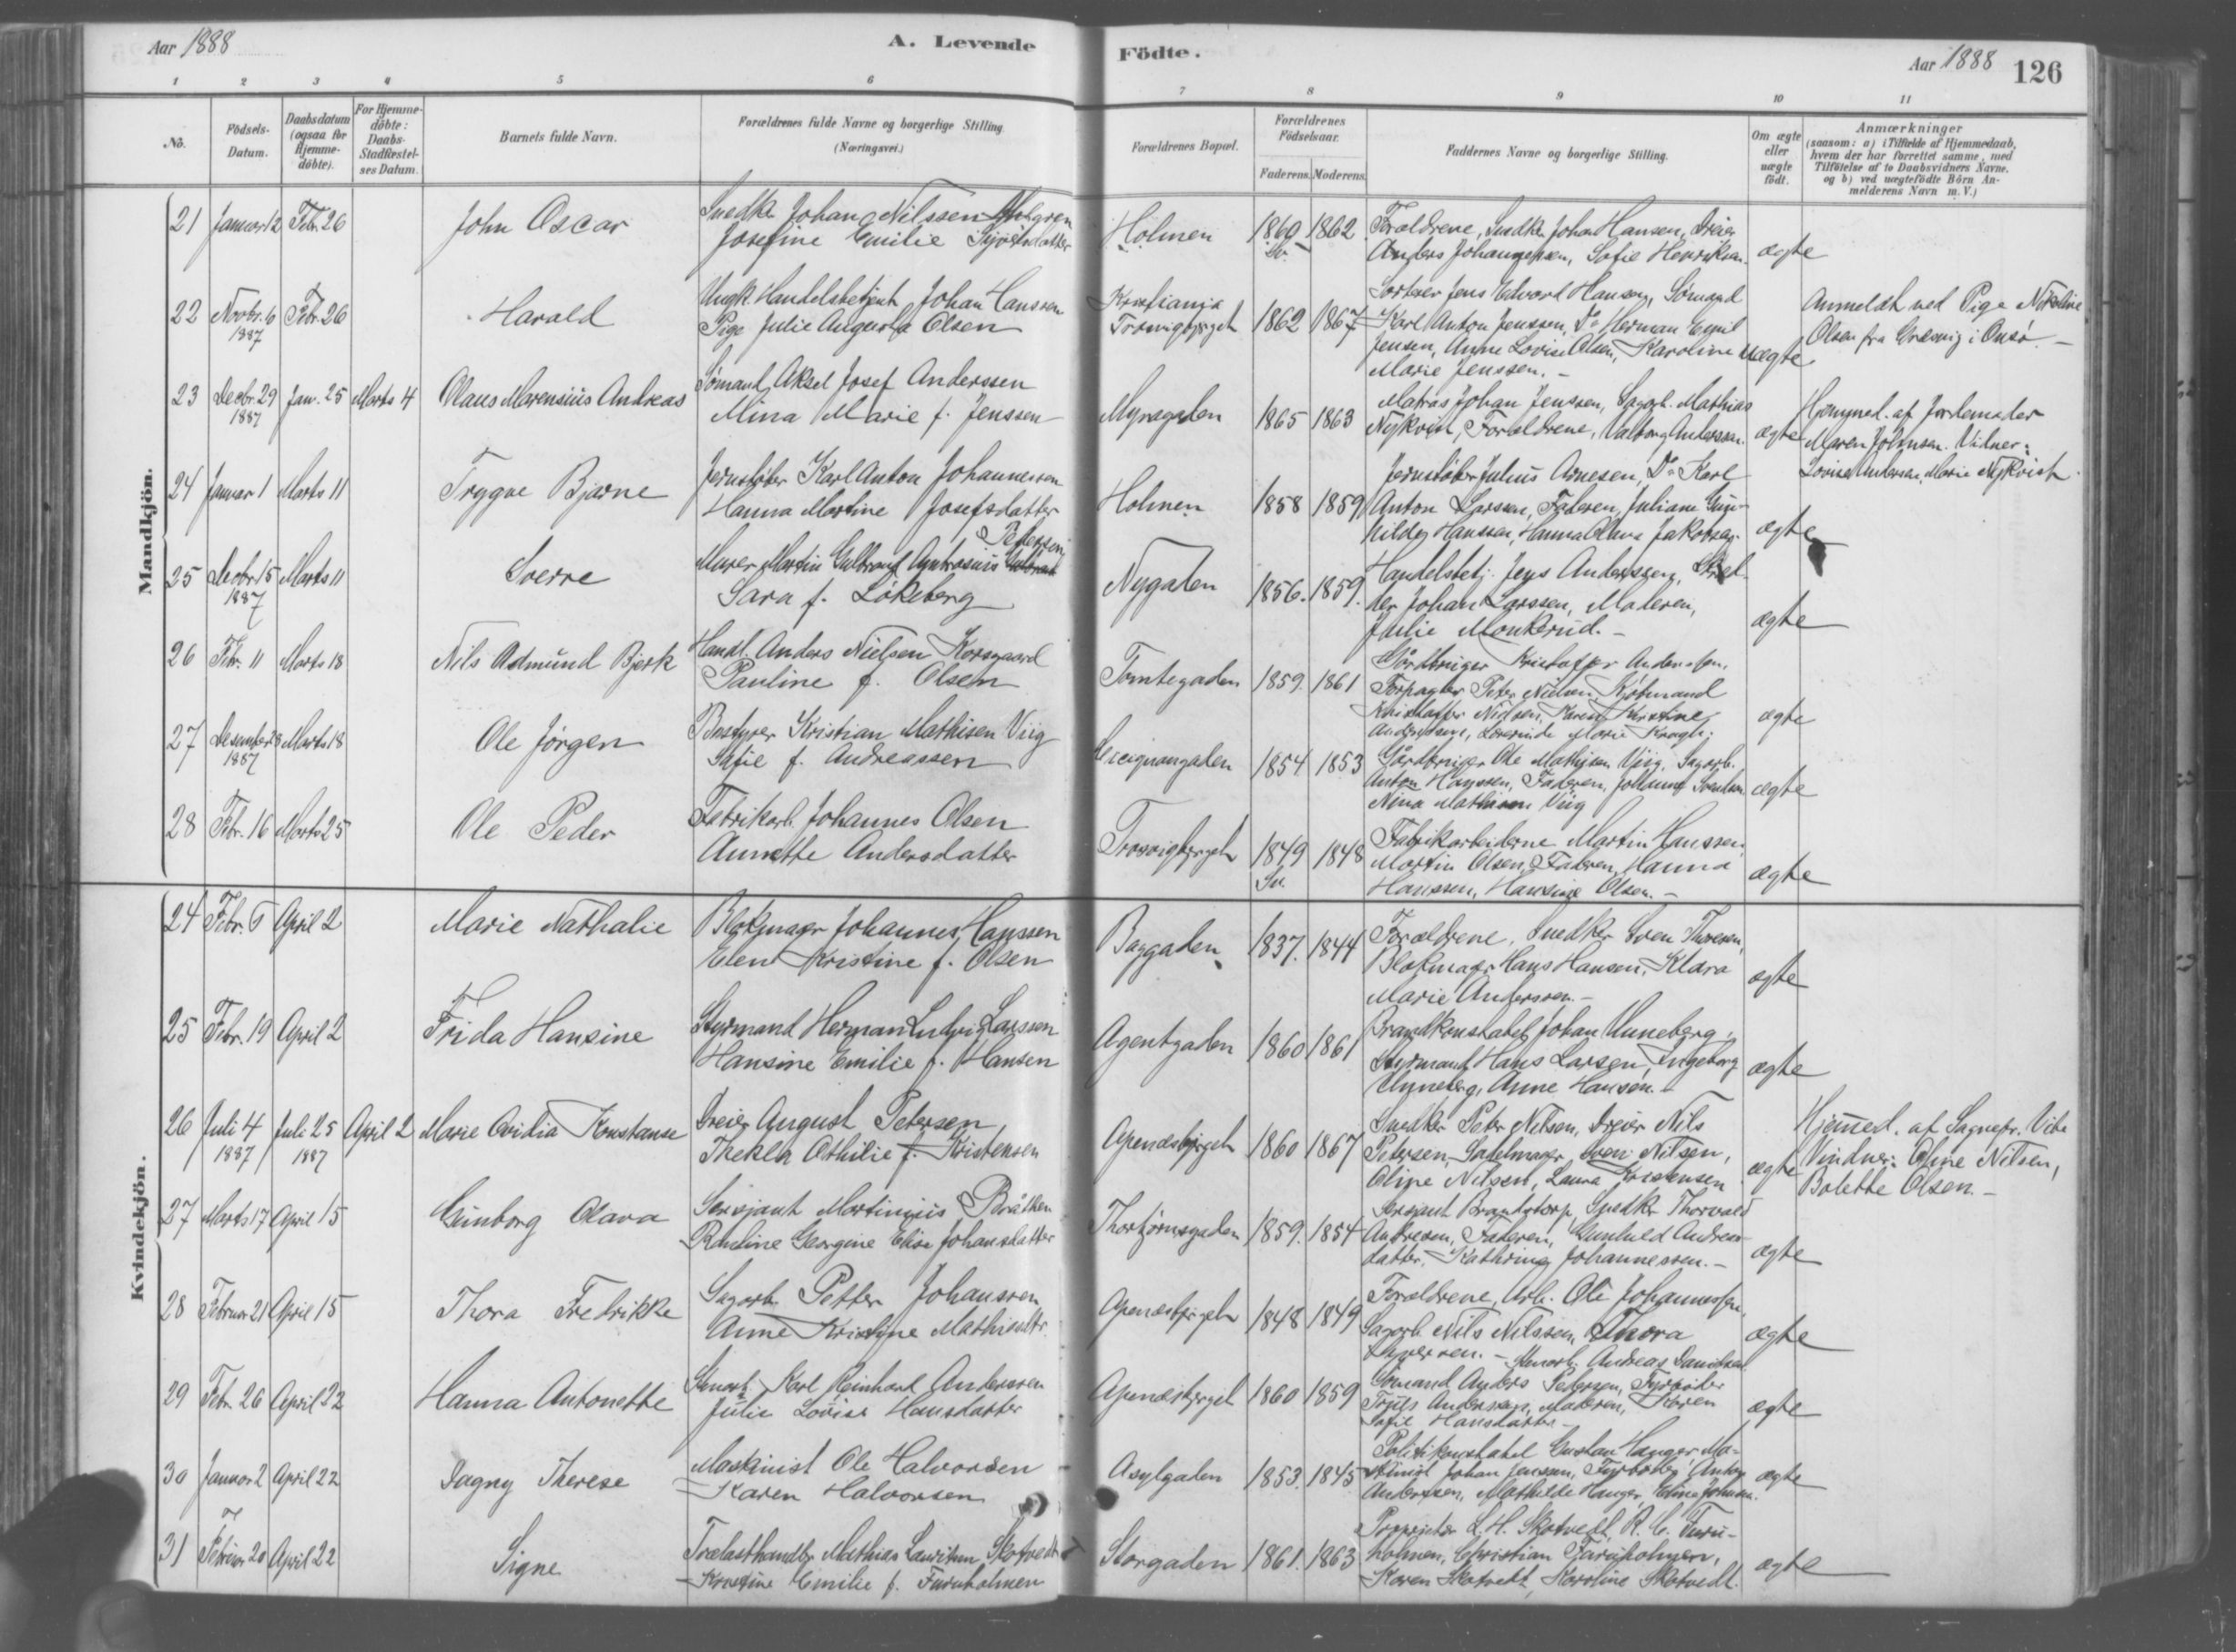 Aar 1888
A. Levende
Födte.
Aar 1888
126
1 2 3 4 5 6 7 8 9 10 11
No.
Födsels-
Datum.
Daabsdatum
(ogsaa for
Hjemme-
döbte).
For Hjemme-
döbte:
Daabs-
Stadfæstel-
ses Datum.
Barnets fulde Navn.
Forældrenes fulde Navne og borgerlige Stilling
(Næringsvei.)
Forældrenes Bopæl.
Forældrenes
Födselsaar.
Faderens. Moderens.
Faddernes Navne og borgerlige Stilling.
Om ægte
eller
uægte
födt.
Anmærkninger
(saasom: a) i Tilfælde af Hjemmedaab,
hvem der har forrettet samme, med
Tilföielse af to Daabsvidners Navne.
og b) ved uægtefödte Börn An-
melderens Navn m. V.)
Mandkjön.
21 Januar 12 Febr. 26
John Oscar
Snedker Johan Nilssen
Josefine Emilie
Holmen
1860 1862
Sv.
Forældrene, Snedker Johan Hansen, Dreier
Anders Johannessen, Sofie Henriksen.
ægte
22 Novbr. 6 Febr. 26
1887
Harald
Ungk. Handelsbetjent Johan Hanssen
Pige Julie Augusta Olsen
Kristiania
Trosvigbjerget
1862 1867
Jens Edvard Hansen, Sömand
Karl Anton Jenssen, Do Herman Emil
Jensen, Anne Lovise Olsen, Karoline
Marie Jenssen. -
uægte
Anmeldt ved Pige Nikoline
Olsen fra Gresvig i Onsö. -
23 Decbr. 29 Jan. 25 Marts 4
1887
Olaus Marensius Andreas
Sömand Aksel Josef Anderssen
Mina Marie f. Jenssen
Myragaden
1865 1863
Matros Johan Jenssen, Sagarb. Mathias
Nykvist, Forældrene, Valborg Anderssen.
ægte
Hjemmed. af Jordemoder
Maren Johnsen. Vidner:
Lovise Andersen, Marie Nykvist.
24 Januar 1 Marts 11
Trygve Bjarne
Jernstöber Karl Anton Johannessen
Hanna Martine Josefsdatter
Holmen
1858 1859
Jernstöber Julius Arnesen, Do Karl
Anton Larssen, Faderen, Juliane Gun-
hilde Hanssen, Hanna Olava Jakobsen.
ægte
25 Decbr. 15 Marts 11
1887
Sverre
Pedersen
Murer Martin Gulbrand Ambrosius
Sara f. Lökeberg
Nygaden
1856. 1859.
Handelsbetj. Jens Anderssen,
Johan Larssen, Moderen,
Julie Monkerud. -
ægte
26 Febr. 11 Marts 18
Nils Asmund Bjerk
Handl. Anders Nielsen Korsgaard
Pauline f. Olsen
Tomtegaden
1859. 1861
Gårdbruger Kristoffer Anderssen,
Forpagter Peter Nielsen, Kjöbmand
Kristoffer Nielsen, Karen Kirstine
Anderssen, Lærerinde Marie Kragh.
ægte
27 Desember 28 Marts 18
1887
Ole Jörgen
Bestyrer Kristian Mathisen Viig
Sofie f. Andreassen
1854 1853
Gårdbruger Ole Mathisen Viig, Sagarb.
Anton Hanssen, Faderen, Johanne Svendsen.
Nina Mathisen Viig
ægte
28 Febr. 16 Marts 25
Ole Peder
Fabrikarb. Johannes Olsen
Annette Andersdatter
Trosvigbjerget
1849 1848
Sv.
Fabrikarbeiderne Martin Hanssen,
Martin Olsen, Faderen, Hanna
Hanssen, Hansine Olsen. -
ægte
Kvindekjön.
24 Febr. 6 April 2
Marie Nathalie
Blokmager Johannes Hanssen
Elen Kristine f. Olsen
Baggaden
1837. 1844
Forældrene, Snedker Sven Thoresen,
Blokmager Hans Hansen, Klara
Marie Anderssen. -
ægte
25 Febr. 19 April 2
Frida Hansine
Styrmand Herman Ludvig Larssen
Hansine Emilie f. Hansen
Agentgaden
1860 1861
Brandkonstabel Johan Unneberg,
Styrmand Hans Larsen, Ingeborg
Unneberg, Anne Hansen. -
ægte
26 Juli 4 Juli 25 April 2
1887 1887
Marie Ovidia Konstanse
Dreier August Petersen
Thekla Othilie f. Kristensen
Apenesbjerget
1860 1867
Snedker Peter Nilsen, Dreier Nils
Petersen, Sadelmager Sven Nilsen,
Oline Nilsen, Laura Kristensen
ægte
Hjemmed. af Sagnepr. Vibe
Vindner: Oline Nilsen,
Bolette Olsen. -
27 Marts 17 April 15
Gunborg Olava
Sersjant Martinius Bråthen
Pauline Georgine Elise Johansdatter
Thorbjörnsgaden
1859. 1854
Sersjant Brandstorp, Snedker Thorvald
Andresen, Faderen, Gunhild Andreas-
datter, Kathrine Johannessen. -
ægte
28 Februar 21 April 15
Thora Fredrikke
Sagarb. Petter Johanssen
Anne Kristine Mathiasdtr.
Apenesbjerget
1848 1849
Forældrene, Arb. Ole Johannessen,
Sagarb. Nils Nilssen, Thora
Iversen. - Andreas Danielsen
ægte
29 Febr. 26 April 22
Hanna Antonette
Karl Reinhard Anderssen
Julie Lovise Hansdatter
Apenesbjerget
1860 1859
Sömand Anders Pedersen, Fyrböder
Anderssen, Moderen, Karen
Sofie Hansdatter -
ægte
30 Januar 2 April 22
Dagny Therese
Maskinist Ole Halvorsen
Karen Halvorsen
Asylgaden
1853. 1845
Politikonstabel Gustav Hauger, Ma-
skinist Johan Jenssen, Fyrböder Anton
Anderssen, Mathilde Hauger, Johnsen.
ægte
31 Februar 20 April 22
Signe
Trælasthandler Mathias Lauritsen Skotvedt
Kristine Emilie f. Furuholmen
Storgaden
1861. 1863
Proprietær L. H. Skotvedt, R. C. Furu-
holmen, Christian Furuholmen,
Karen Skotvedt, Karoline Skotvedt.
ægte